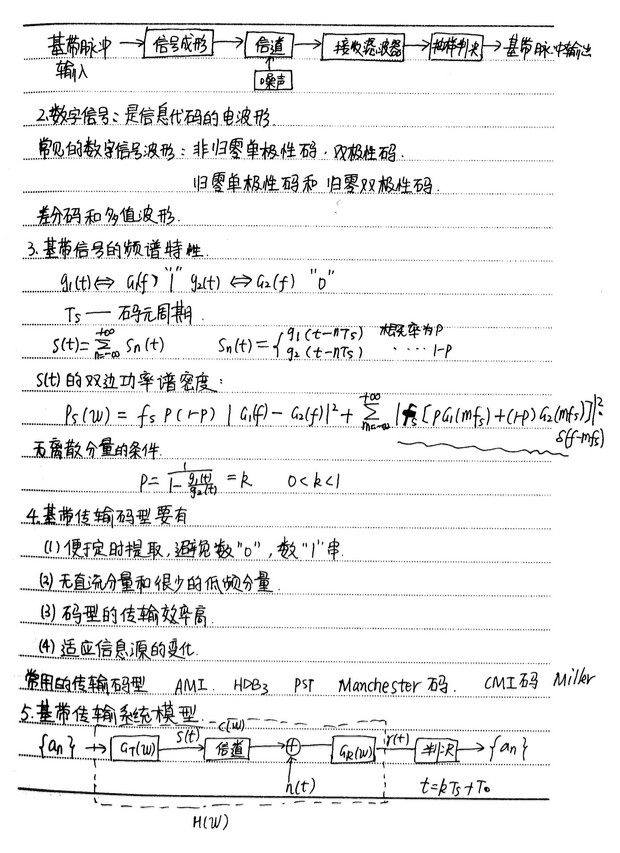 基带脉冲 → 信号成形 → 信道 → 接收滤波器 → 抽样判决 → 基带脉冲输出
输入
噪声
2.数字信号：是信息代码的电波形.
常见的数字信号波形：非归零单极性码、双极性码.
归零单极性码和 归零双极性码.
差分码和多值波形.
3.基带信号的频谱特性.
g₁(t)⇔G₁(f) "1" g₂(t)⇔G₂(f) "0"
Ts — 码元周期.
S(t)=∑_{n=-∞}^{+∞} Sn(t) Sn(t)={g₁(t-nTs) 概率为P
g₂(t-nTs) ···· 1-P
S(t)的双边功率谱密度：
Ps(W) = fs P(1-P) |G₁(f)-G₂(f)|²+∑_{m=-∞}^{+∞} |fs[PG₁(mfs)+(1-P)G₂(mfs)]|²·
δ(f-mfs)
无离散分量的条件.
P=1/(1-g₁(t)/g₂(t))=k 0<k<1
4.基带传输码型要有
(1)便于定时提取,避免数"0",数"1"串.
(2)无直流分量和很少的低频分量.
(3)码型的传输效率高.
(4)适应信息源的变化.
常用的传输码型 AMI. HDB₃ PST Manchester码. CMI码 Miller
5.基带传输系统模型
{an} → GT(W) S(t) C(W) 信道 → ⊕ → GR(W) r(t) 判决 → {an}
n(t) t=kTs+T₀
H(W)